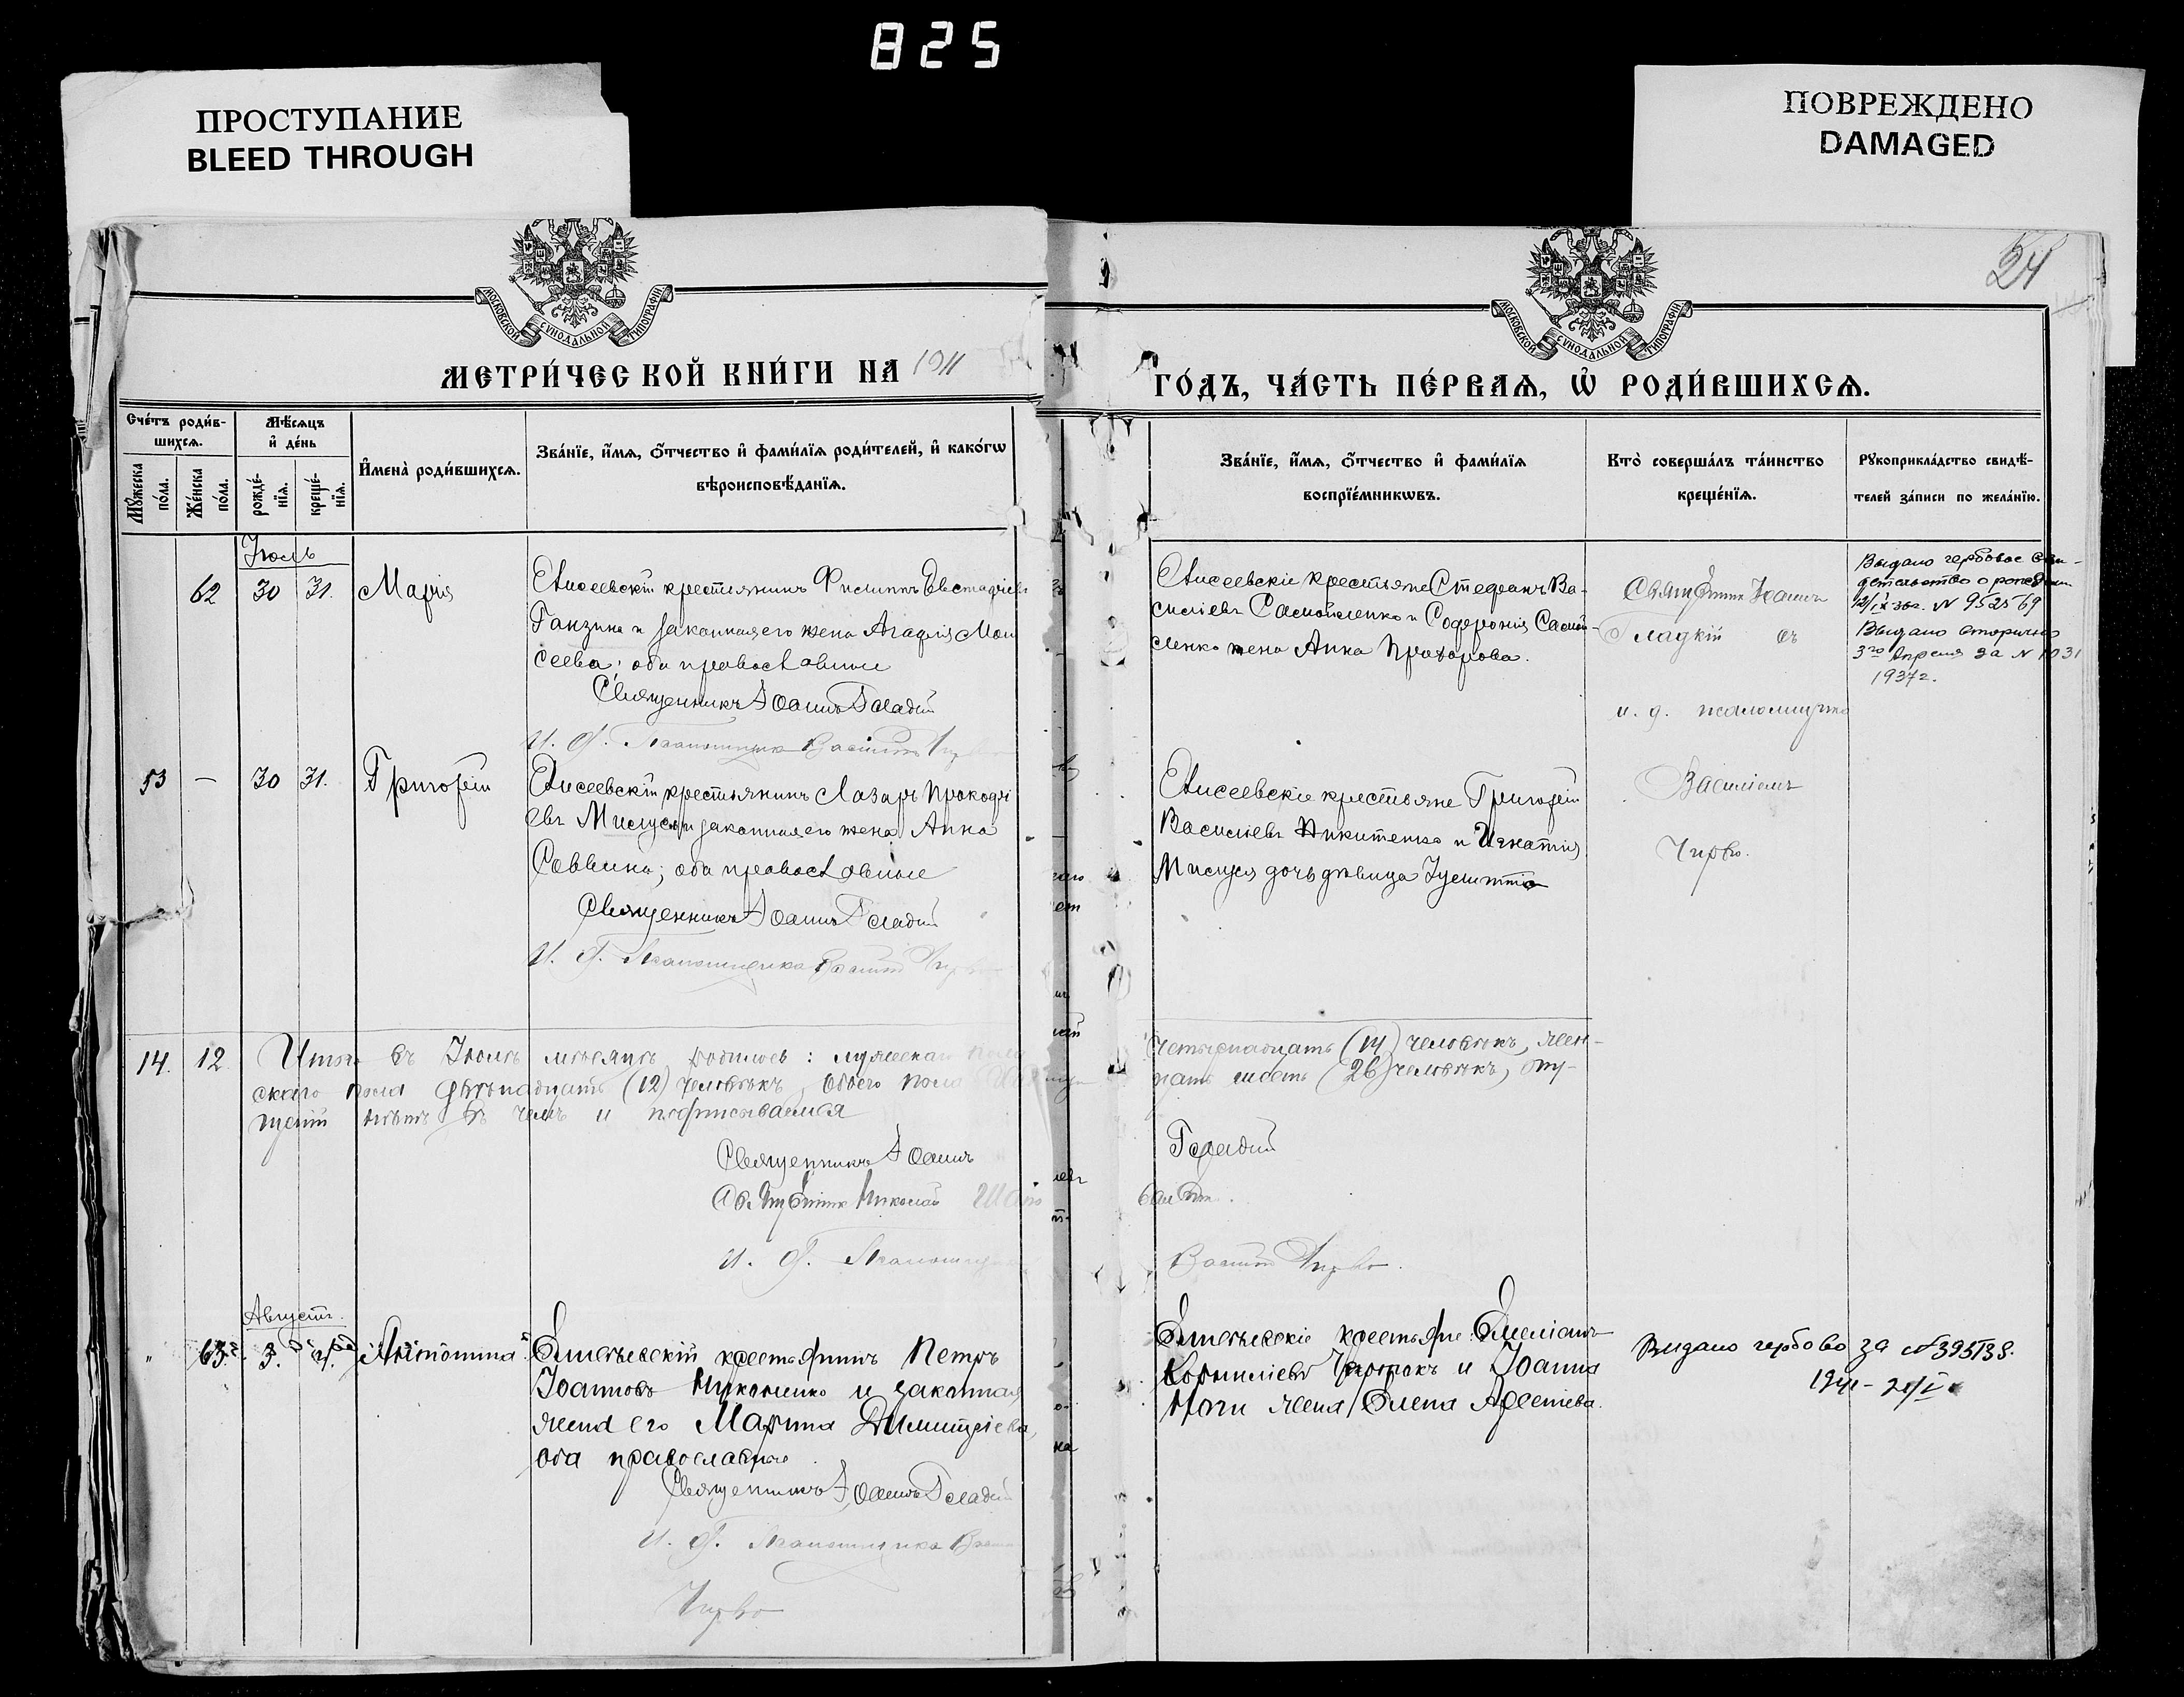 825
ПРОСТУПАНИЕ
BLEED THROUGH
ПОВРЕЖДЕНО
DAMAGED
24
МОСКОВСКОЙ СУНОДАЛЬНОЙ ТИПОГРАФІИ
МОСКОВСКОЙ СУНОДАЛЬНОЙ ТИПОГРАФІИ
МЕТРИ́ЧЕСКОЙ КНИ́ГИ НА 1911
ГО́ДЪ, ЧА́СТЬ ПЕ́РВАѦ, Ѡ҆ РОДИ́ВШИХСѦ.
Сче́тъ роди́в-
шихсѧ.
Мꙋ́жеска
по́ла.
Же́нска
по́ла.
Мѣ́сѧцъ
и҆ де́нь
рожде́-
нїѧ.
креще́-
нїѧ.
И҆мена̀ роди́вшихсѧ.
Зва́нїе, и҆́мѧ, ѻ҆́тчество и҆ фами́лїѧ роди́телей, и҆ како́гѡ
вѣроисповѣ́данїѧ.
Зва́нїе, и҆́мѧ, ѻ҆́тчество и҆ фами́лїѧ
воспрїе́мникѡвъ.
Кто̀ соверша́лъ та́инство
креще́нїѧ.
Рꙋкоприкла́дство свидѣ́-
телей за́писи по жела́нїю.
Іюль
62 30 31. Марія
Елисеевскій крестьянинъ Филиппъ Евстафіевъ
Ганзина и законная его жена Агафія Мои
сеева; оба православные
Священникъ Іоаннъ Гладкій
И. д. Псаломщика Василій Чирво
Елисеевскіе крестьяне Стефанъ Ва-
силіевъ Самойленко и Софронія Самой-
ленко жена Анна Прохорова.
Священник Іоаннъ
Гладкій съ
и. д. псаломщика
Василіемъ
Чирво.
Выдано гербовое сви-
детельство о рождении
N 952569
Выдано вторично
3го Апреля за N 1031
1937г.
53 — 30 31. Григорій
Елисеевскій крестьянинъ Лазарь Прокофі
евъ Мисуся и законная его жена Анна
Саввина; оба православные
Священникъ Іоаннъ Гладкій
И. д. Псаломщика Василій Чирво
Елисеевскіе крестьяне Григорій
Василіевъ Никитенко и Игнатія
Мисуся дочь дѣвица Іулитта
14. 12. Итого въ Іюлѣ мѣсяцѣ родилось: мужескаго пола
четырнадцать (14) человѣкъ, жен-
скаго пола двѣнадцать (12) человѣкъ, обоего пола
цать шесть (26) человѣкъ, опу-
щеній нѣтъ въ чемъ и подписываемся
Священникъ Іоаннъ
Гладкій
Николай
И. д. Псаломщика
Василій Чирво.
Августъ.
" 63. 3. 4. Антонина
Елисѣевскій крестьянинъ Петръ
Іоанновъ и законная
жена его Марина Димитріева,
оба православные.
Священникъ Іоаннъ Гладкій
И. д. Псаломщика Васил
Чирво
Елисѣевскіе крестьяне: Емеліанъ
Корниліевъ и Іоанна
жена Елена Арсеніева.
Видано гербово за № 395138.
1941-